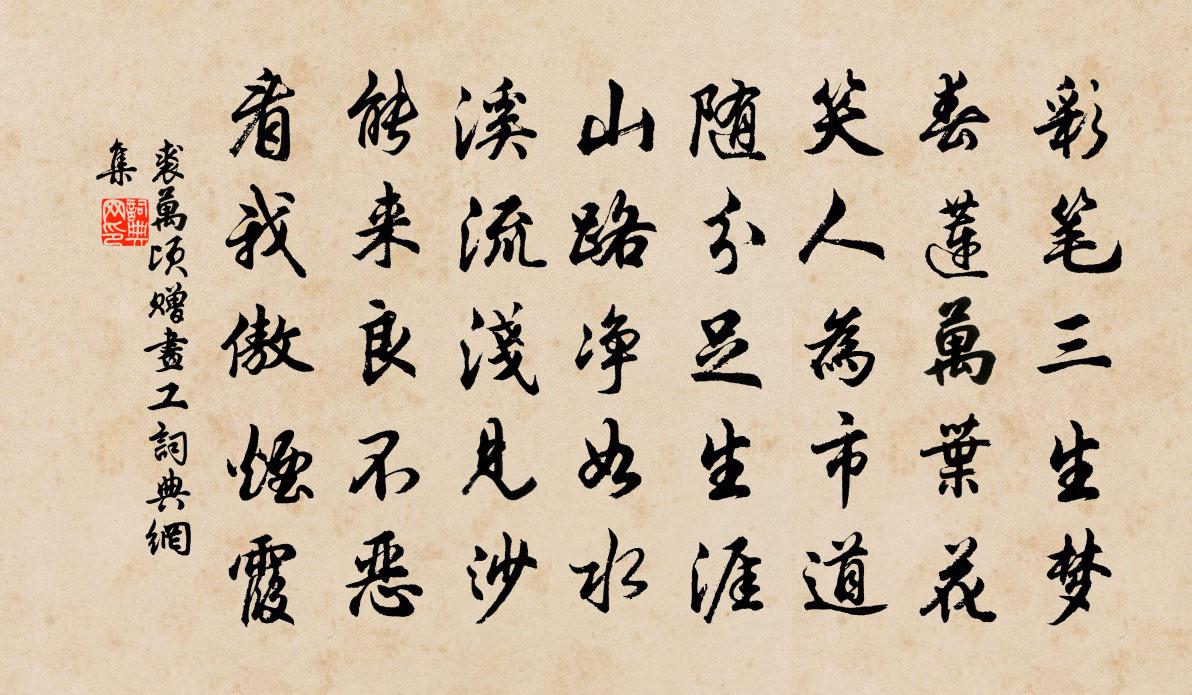 彩笔三生梦
春莲萬葉花
笑人為市道
随分足生涯
山路净如水
溪流淺見沙
能来良不恶
看我傲煙霞
裘萬頃贈畫工詞典網
集
詞典
网印